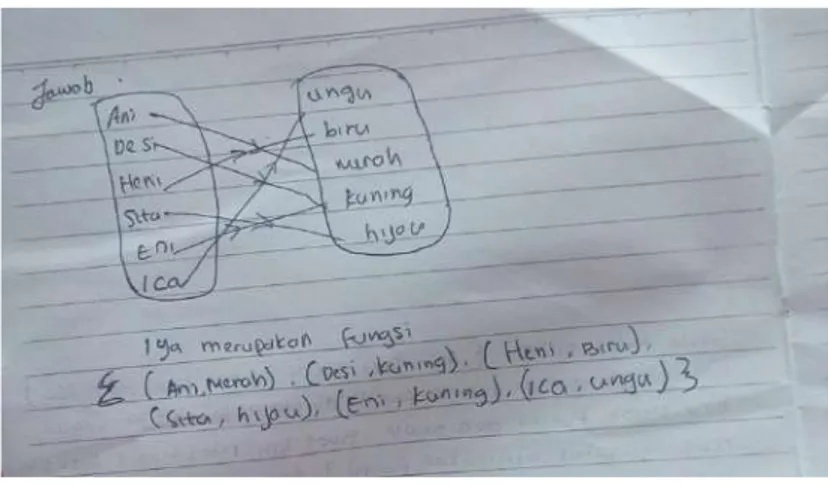 Jawab.
Ani
Desi
Heni
Sita
Eni
Ica
ungu
biru
merah
kuning
hijau
Iya merupakan fungsi
{ (Ani, Merah), (Desi, kuning), (Heni, Biru),
(Sita, hijau), (Eni, kuning), (Ica, ungu) }